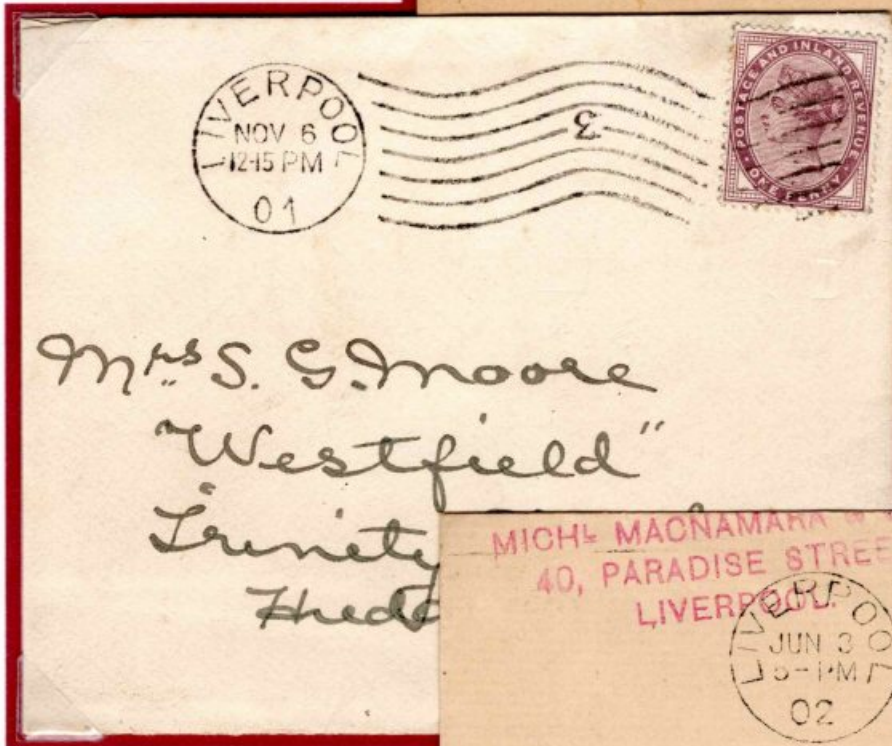 LIVERPOOL
NOV 6
12-15 PM
01
3
POSTAGE AND INLAND REVENUE
ONE PENNY
Mrs S. G. Moore
"Westfield"
Trinity
Hudd
MICHL MACNAMARA &
40, PARADISE STREE
LIVERPOOL.
LIVERPOOL
JUN 3
5-PM
02